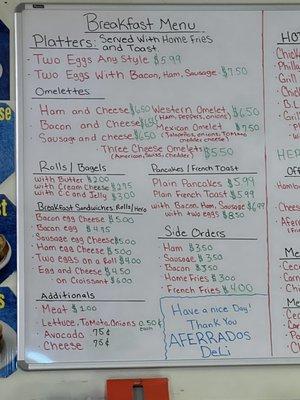 Breakfast Menu
Platters: Served With Home Fries
and Toast.
Two Eggs Any Style $5.99
Two Eggs With Bacon, Ham, Sausage $7.50
Omelettes:
Ham and Cheese $6.50
Bacon and Cheese
Sausage and cheese
Western Omelet $6.50
(Ham, Peppers, onions)
Mexican Omelet $7.50
(Jalapeños, onions, Tomato
cheddar cheese)
Three Cheese Omelet $5.50
(American, Swiss, cheddar)
Rolls / Bagels
with Butter $2.00
with Cream Cheese $2.75
with C.C and Jelly $3.00
Breakfast Sandwiches, Rolls/Hero
Bacon egg Cheese $5.00
Bacon egg $4.75
Sausage egg Cheese $5.00
Ham egg Cheese $5.00
Two eggs on a Roll $4.00
Egg and Cheese $4.50
on Croissant $6.00
Additionals
Meat $2.00
Lettuce, Tomato, Onions 0.50¢
each
Avocado 75¢
Cheese 75¢
Pancakes / French Toast
Plain Pancakes $5.99
Plain French Toast $5.99
with Bacon, Ham, Sausage $6.99
with two eggs $8.50
Side Orders
Ham $3.50
Sausage $3.50
Bacon $3.50
Home Fries $3.00
French Fries $4.00
Have a nice Day!
Thank You
AFERRADOS
DeLi